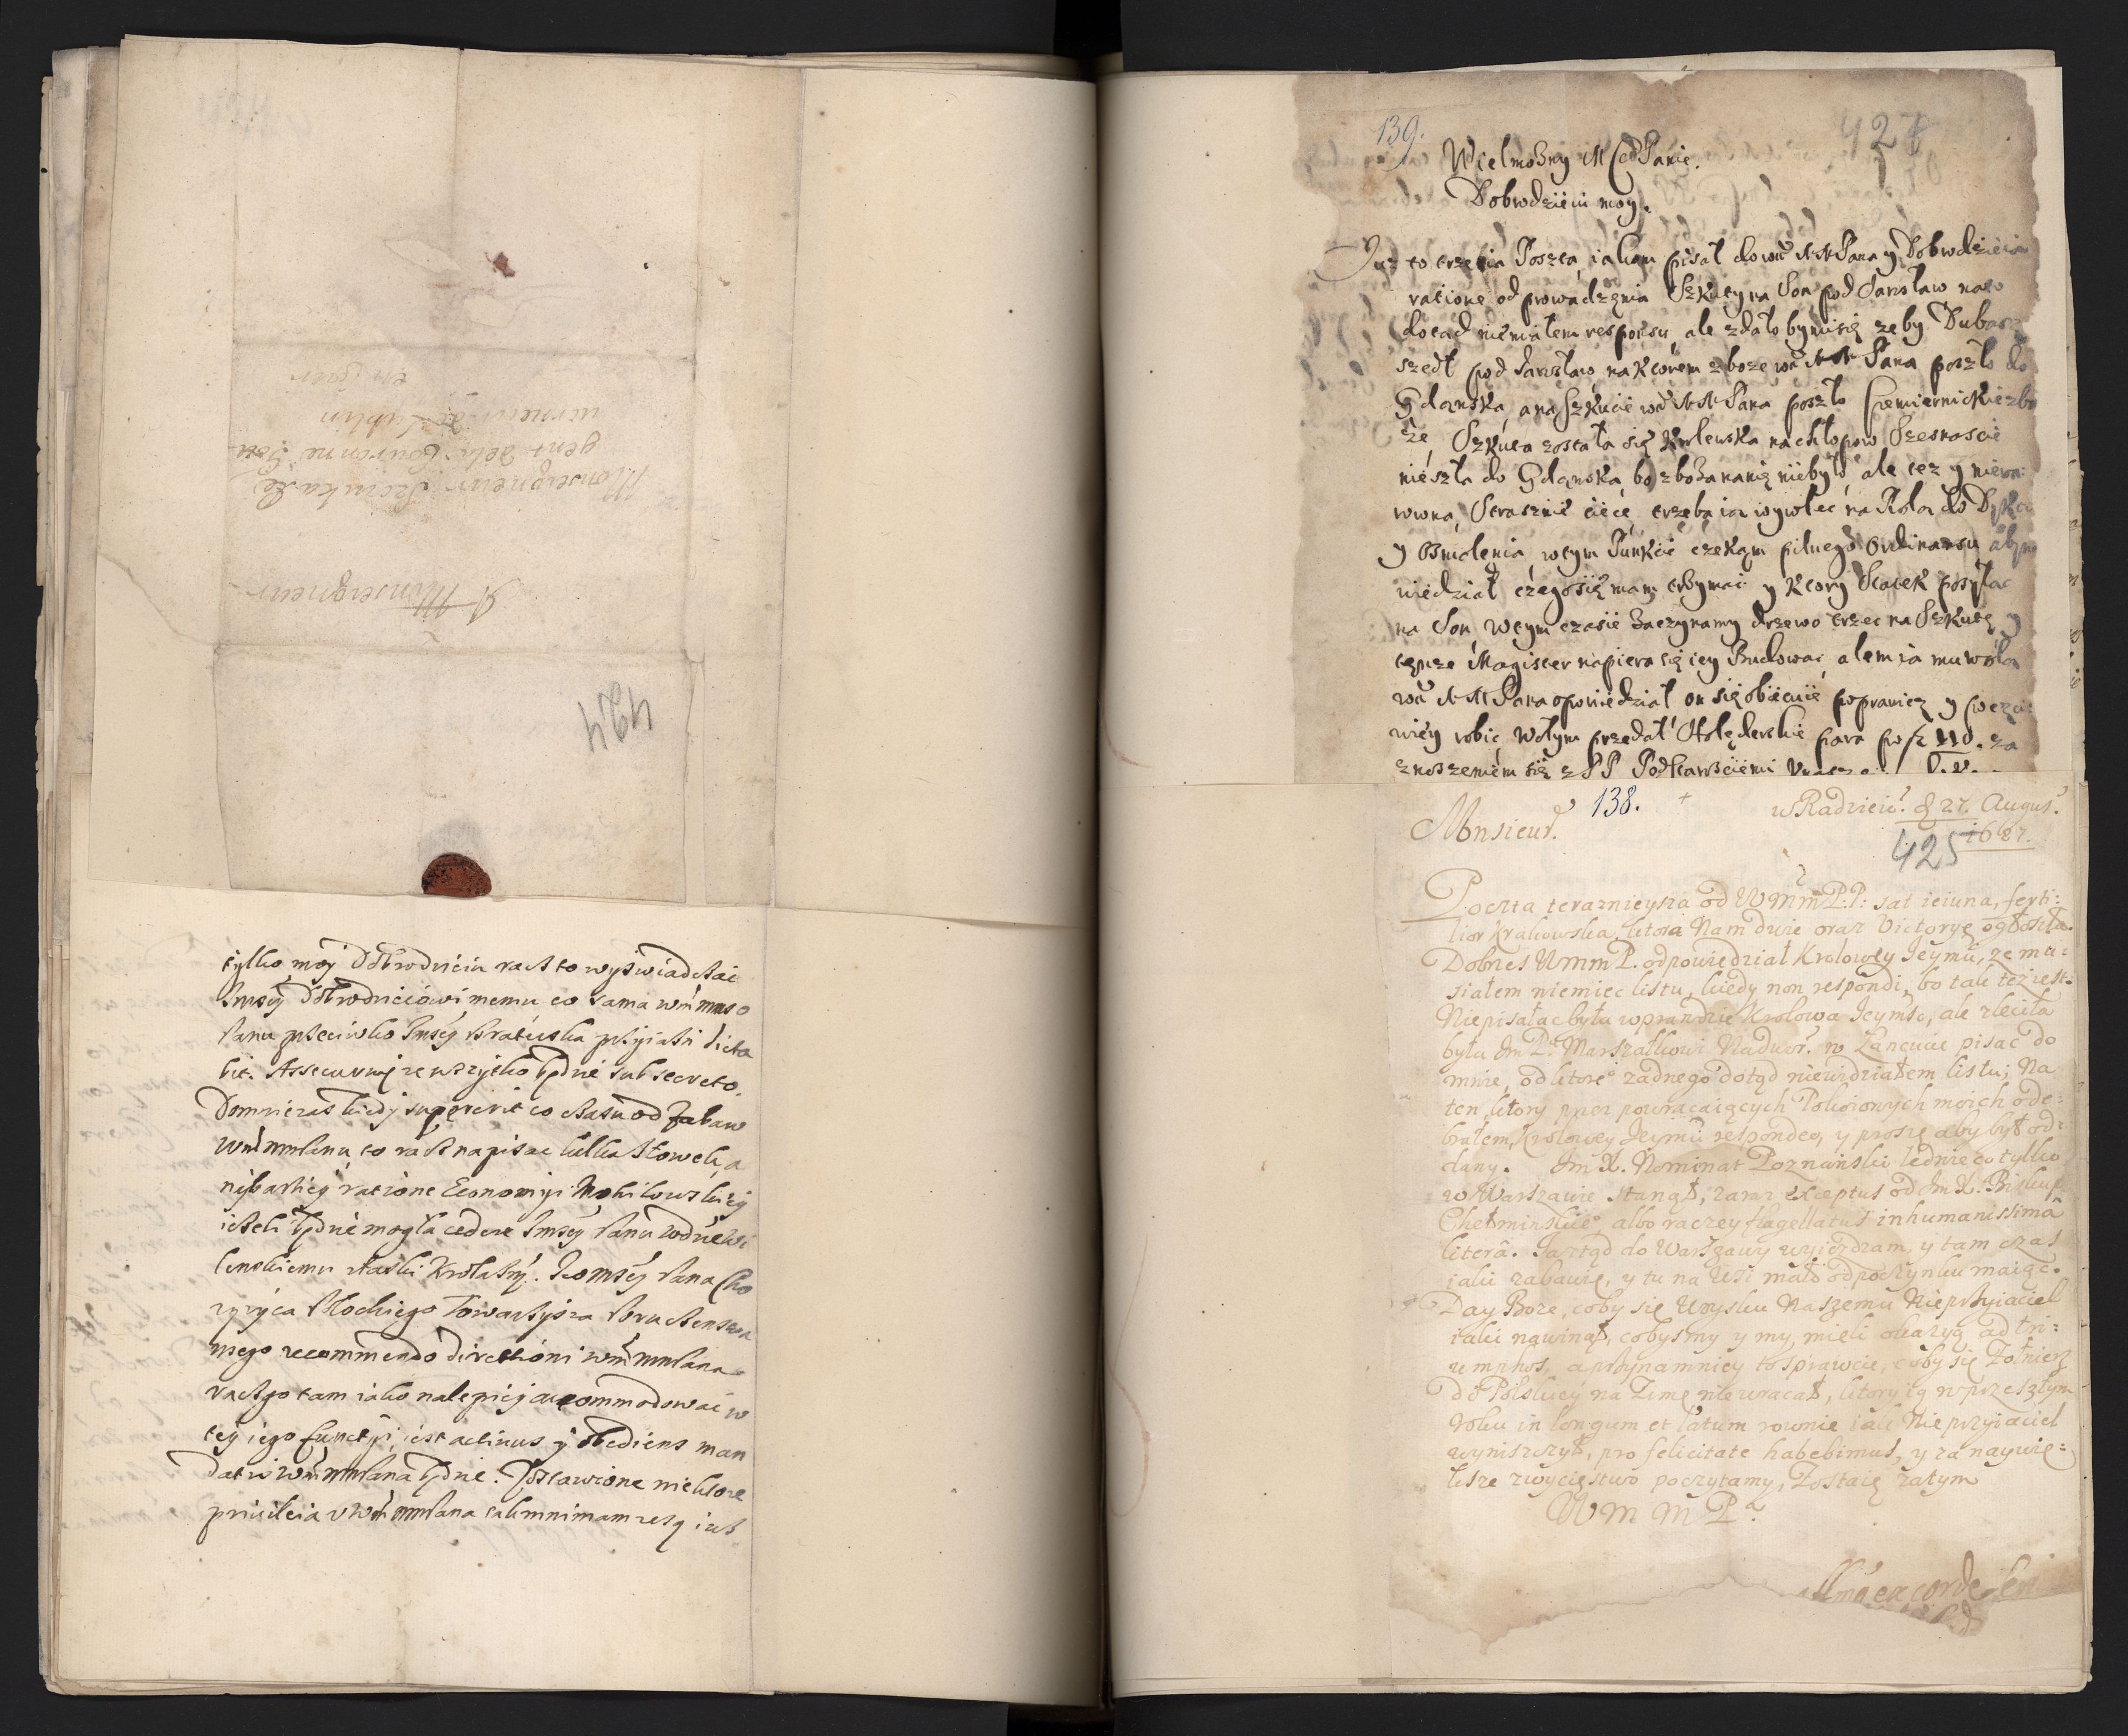 A Monseigneur
Monseigneur Szczuka Re
gent de la Couronne
424
tylko moy Dobrodzieiu racz to wyswiadczać
Imscy Dobrodzieiowi memu co sama wm mmso
Panu przeciwko Imscy Bratuska przyiazń dicta
bit. Assecuruię ze wszytko będzie sub secreto.
Domnie zas kiedy supererit co czasu od zabaw
wm mmPanu, to racz napisac kilka słowek, a
naybarziey ratione Economyi Mohilowskiey
iezeli będzie mogła cedere Imscy Panu Wdzie Wi
lenskiemu z łaski Krola JMci. Jeomscy Pana Cho
rązyca Płockiego Towarzysza
mego recommendo directioni wm mmPana
racz go tam iako nalepiey accommodowac w
tey iego functyi, iest activus y obediens man
datis wm mmPana będzie. Zostawione niektore
privileia u wm mmPana
139.
428
Wielmozny M Panie.
Dobrodzieiu moy.
Juz to trzecia Poszta, iakom pisał do wm MMPana y Dobrodzieia
ratione odprowadzenia Szkuty na Son pod Jarosław na to
dotad niemiałem responsu, ale zdało by mi się zeby Dubas
szedł pod Jarosław na ktorem zboze wm MMPana poszło do
Gdanska, a na Szkucie wm MMPana poszło Siemiernickie zbo
ze, Szkuta została się Krolewska na chłopow Szesnascie
nieszła do Gdanska, bo zboza na nię niebyło, ale tez y niero:
wna, Strasznie ciece, trzeba ią wywlec na Koła do Dychto
y Osmolenia, w tym Punkcie czekam pilnego Ordinansu abym
wiedział czego się mam trzymac y ktory Statek posyłac
na Son, W tym czasie zaczynamy drzewo trzec na Szkutę y
tenze Magister napiera się iey Budowac, alem ia mu wolą
wm MMPana opowiedział on się obiecuie poprawicz y poczci:
wiey robic, Wołym przedał Holęderskie para po fl 110. za
znoszeniem się z PP Podstarościemi
138. +
w Radzieiow. d 27. August.
1687.
425
Monsieur.
Poczta teraznieysza od WMmP.P: sat ieiuna, ferti:
lior Krakowska, ktora Nam dwie oraz Victorye ogłosiła.
Dobrzes WmmP. odpowiedział Krolowey Jeymci, ze mu:
siałem niemiec listu, kiedy non respondi, bo tak tez iest.
Niepisałac była wprawdzie Krolowa Jeymsc, ale zleciła
była Jm Pu Marszałkowi Nadwor. w Łancucie pisac do
mnie, od ktorego zadnego dotąd niewidziałem listu; Na
ten ktory przez powracaiących Pokoiowych moich ode:
brałem, Krolowey Jeymci respondeo, y proszę aby był od:
dany. Jm X. Nominat Poznanski ledwie co tylko
w Warszawie stanął, zaraz exceptus od Jm X. Biskupa
Chełminskiego albo raczey flagellatus inhumanissima
litera. Ja ztąd do Warszawy wyiezdzam, y tam czas
iaki zabawię, y tu na Wsi mało odpoczynku maiąc.
Day Boze, coby się Woysku Naszemu Nieprzyiaciel
iaki nawinął, cobysmy y my, mieli okazyą ad tri:
umphos, a przynamniey to sprawcie, coby się Zołnierz
do Polskiey na Zimę niewracał, ktory ią w przeszłym
Roku in longum et latum rownie iak Nieprzyiaciel
wyniszczył, pro felicitate habebimus, y za naywię:
ksze zwycięstwo poczytamy, Zostaię zatym
WM M Pa.
ex corde